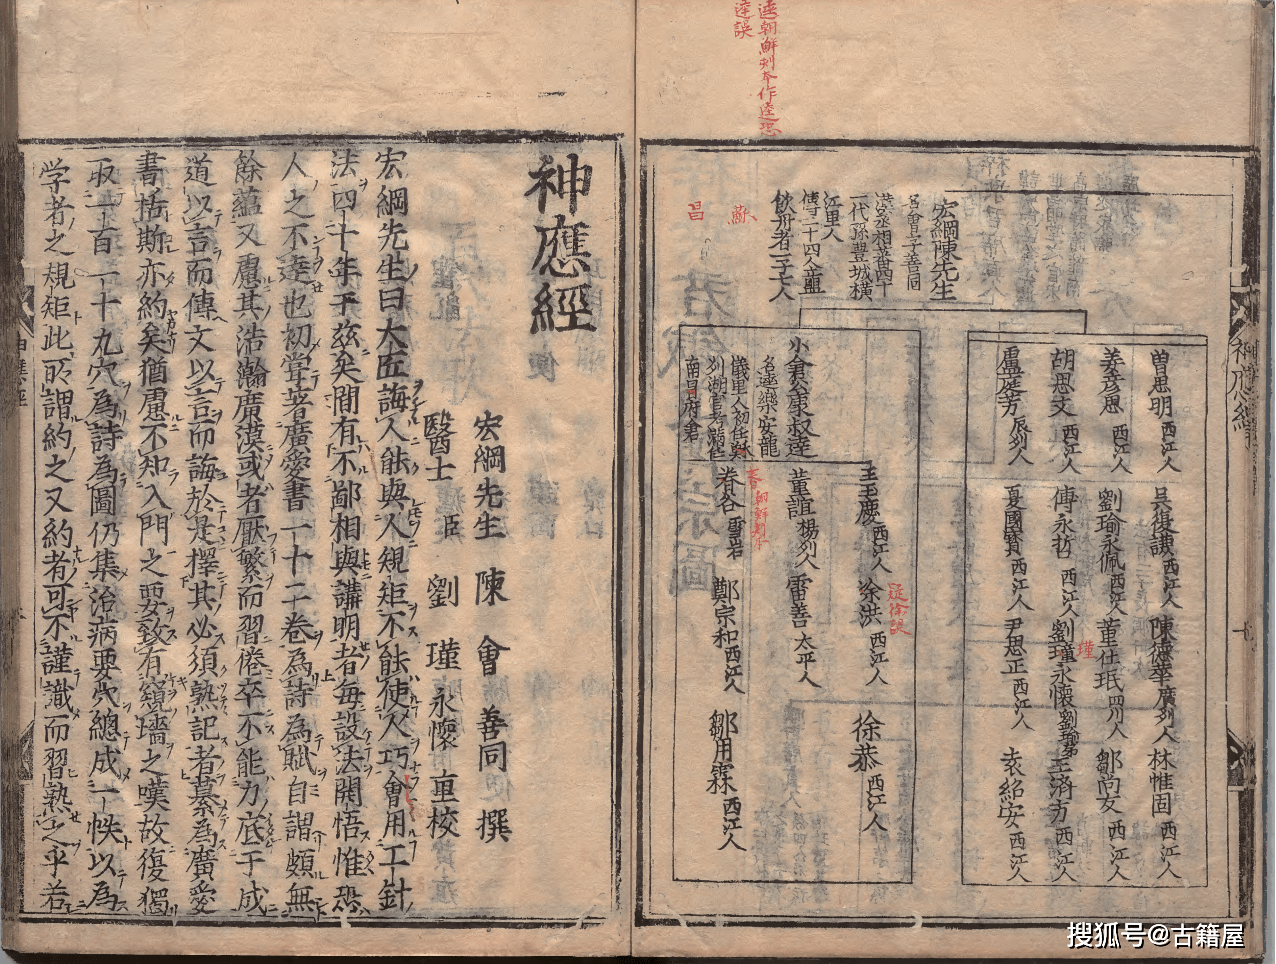 逵朝鮮刻本作逵恐
逵誤
宏綱陳先生
名會字善同
漢丞相蕃四十
一代孫豐城橫
江里人
傳二十四人盟
飲丹者二十人
曾思明 西江人 吳復謙 西江人 陳德華 廣州人 林惟固 西江人
姜彥思 西江人 劉瑜永佩 西江人 董仕珉 四川人 鄒尚友 西江人
胡思文 西江人 傅永哲 西江人 劉瑾永懷 劉瑜弟 王濟方 西江人
瑾
盧廷芳 辰州人 夏國賓 西江人 尹思正 西江人 袁紹安 西江人
小倉公康叔逵
名逵樂安龍
儀里人初住
列湖官考滿住
南昌府倉
王玉慶 西江人 徐洪 西江人 徐恭 西江人
董誼 楊州人 雷善 太平人
春谷 雪岩 鄭宗和 西江人 鄒用霖 西江人
春朝鮮刻本
蘇
昌
神應經
神應經
宏綱先生 陳 會 善同 撰
醫士 臣 劉 瑾 永懷 重校
宏綱先生曰大匠誨人能與人規矩不能使人巧會用工針
法四十年于玆矣間有不鄙相與講明者每設法開悟惟恐
人之不逵也初嘗著廣愛書一十二卷為詩為賦自謂頗無
餘蘊又慮其浩瀚廣漠或者厭繁而習倦卒不能力底于成
道以言而傳文以言而誨於是擇其必須熟記者纂為廣愛
書括斯亦約矣猶慮不知入門之要致有窺墻之嘆故復獨
取一百一十九穴為詩為圖仍集治病要穴總成一帙以為
学者之規矩此所謂約之又約者可不謹識而習熟之乎若
搜狐号@古籍屋